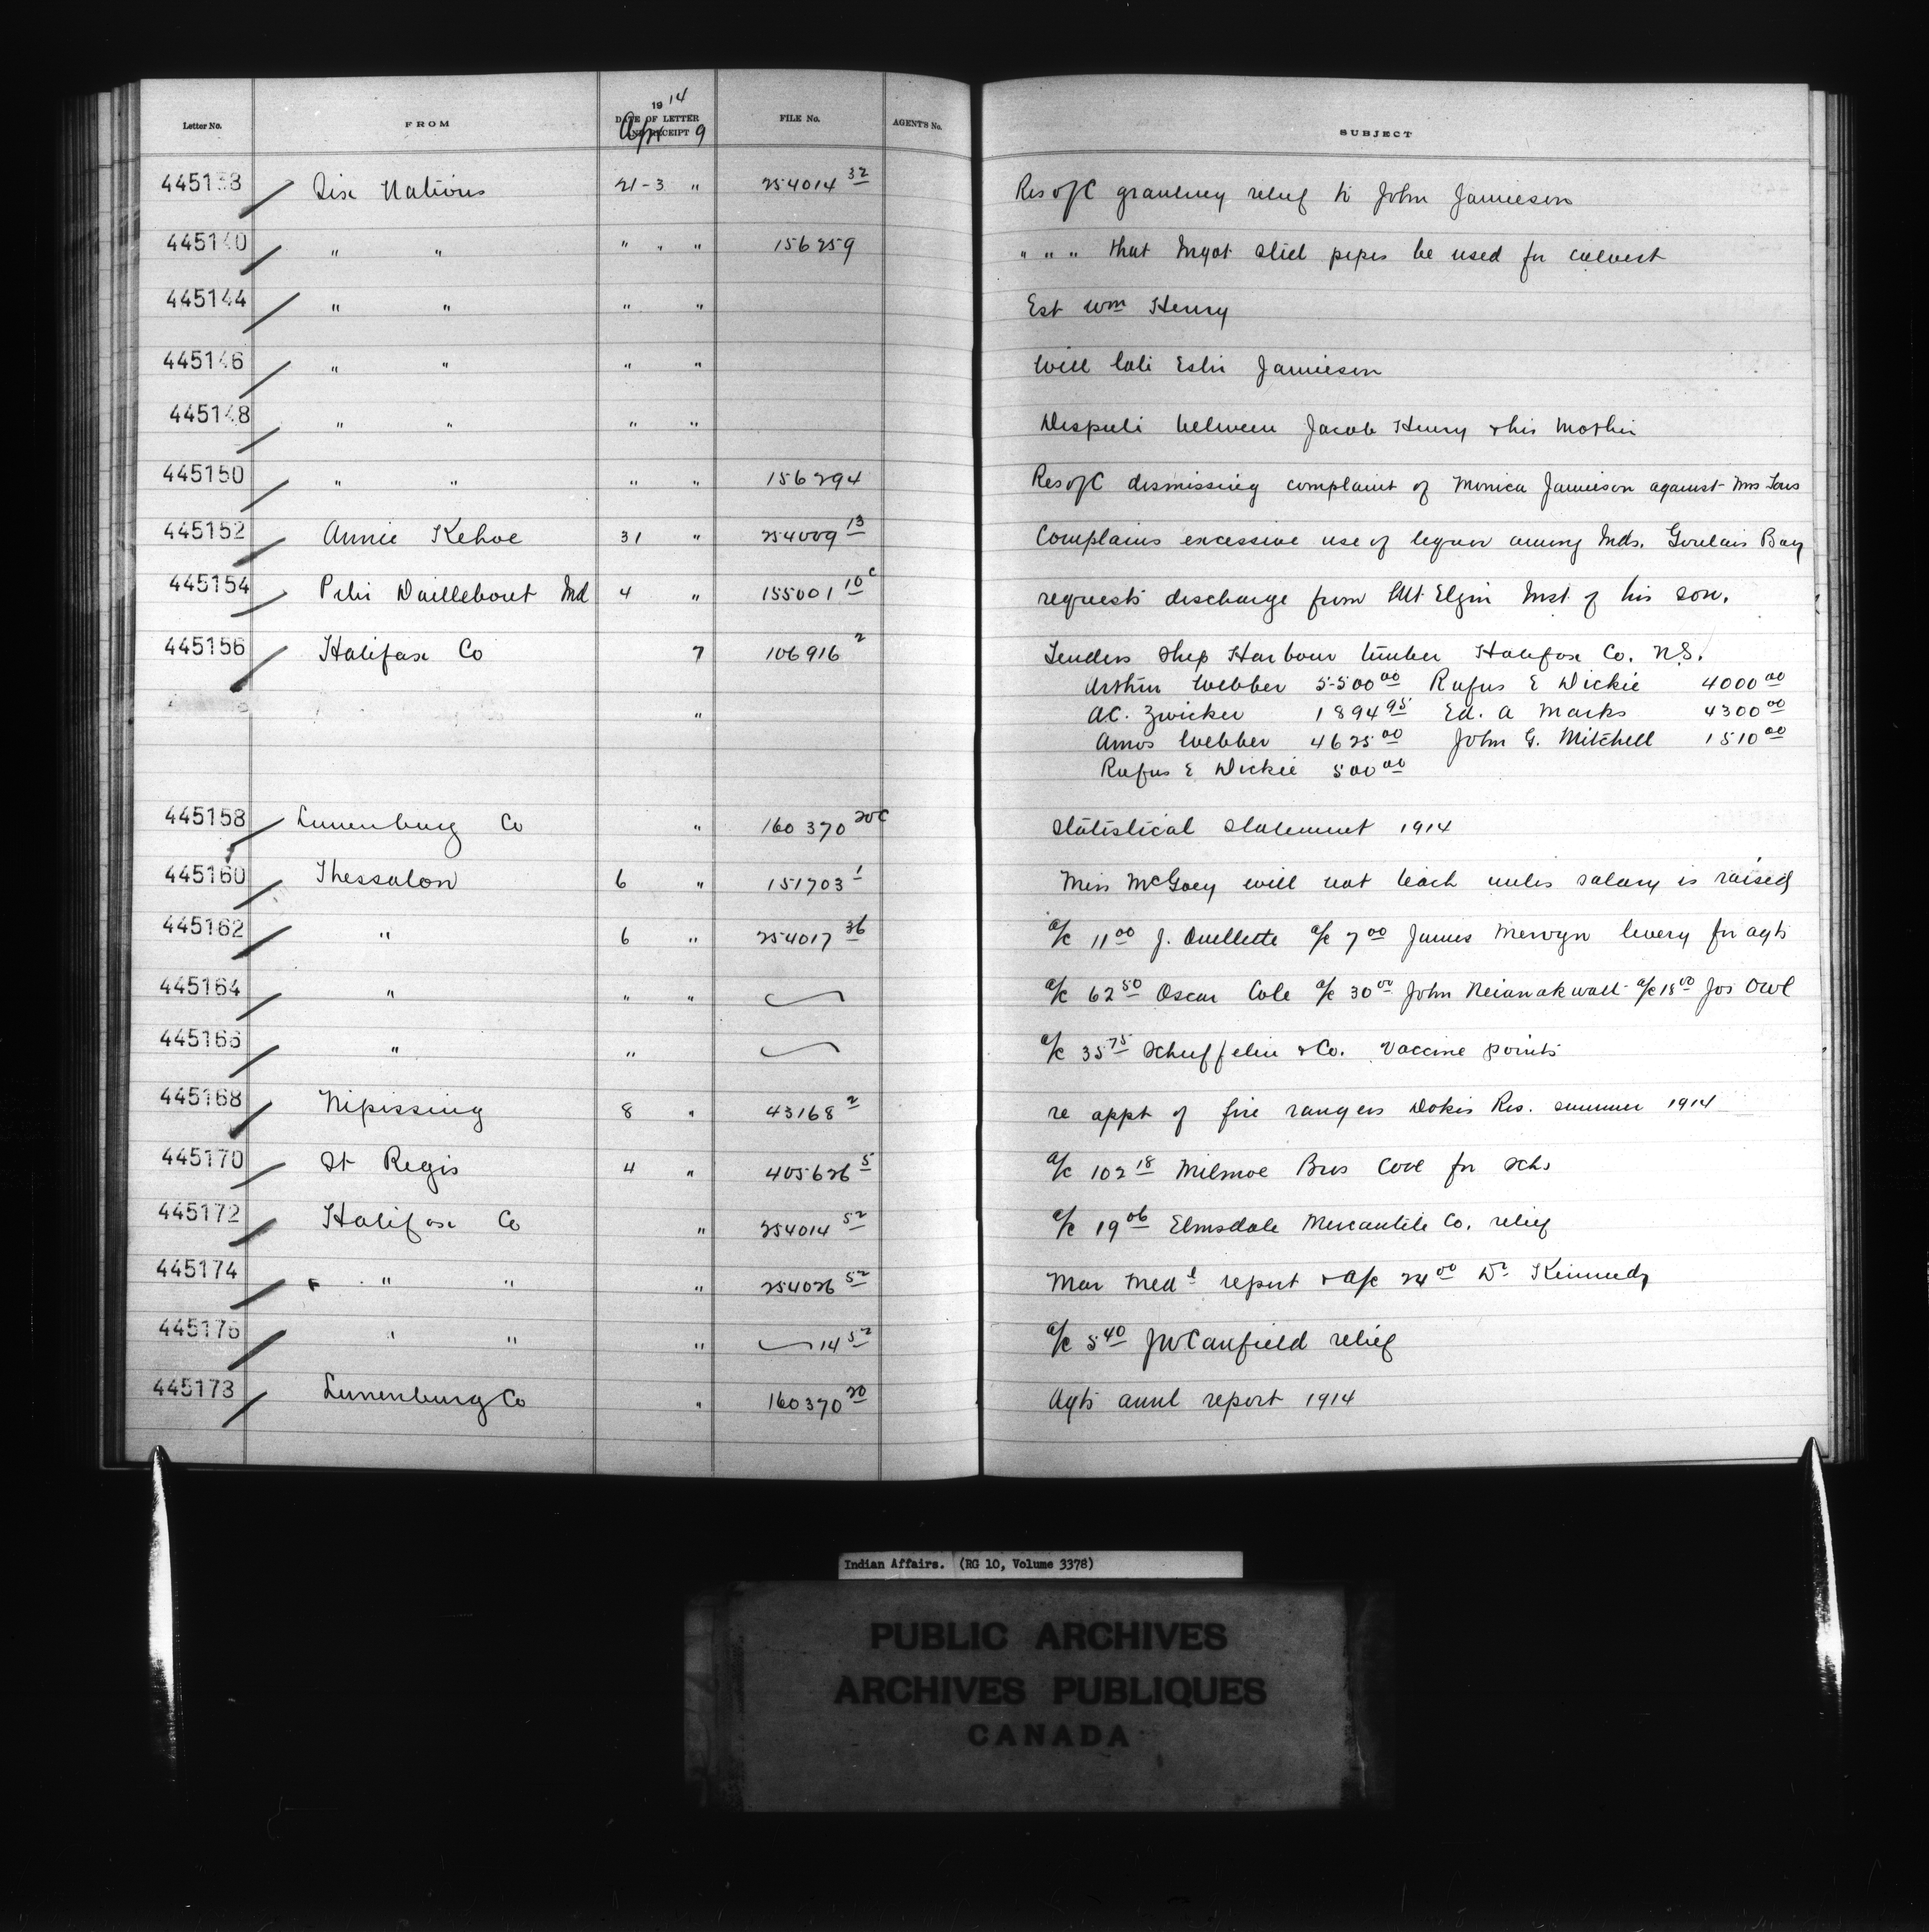 1914
Letter No. FROM DATE OF LETTER AND RECEIPT FILE No. AGENT'S No. SUBJECT
Apr 9
445138 Six Nations 21-3 " 254014 32 Res of C granting relief to John Jamieson
445140 " " " " " 156259 " " " that Ingot Steel pipes be used for culvert
445144 " " " " Est Wm Henry
445146 " " " " Will late Esther Jamieson
445148 " " " " Dispute between Jacob Henry & his Mother
445150 " " " " 156294 Res of C dismissing complaint of Monica Jamieson against Mrs
445152 Annie Kehoe 31 " 254009 13 Complains excessive use of liquor among Inds. Goulais Bay
445154 Peter Daillebout Ind 4 " 155001 10c requests discharge from Mt Elgin Inst. of his son.
445156 Halifax Co 7 106916 2 Tenders Ship Harbour timber Halifax Co. N.S.
Arthur Webber 5500 00 Rufus E Dickie 4000 00
" A.C. Zwicker 1894 95 Ed. A Marks 4300 00
Amos Webber 4625 00 John G. Mitchell 1510 00
Rufus E Dickie 500 00
445158 Lunenburg Co " 160370 20c Statistical Statement 1914
445160 Thessalon 6 " 151703 1 Miss McGoey will not teach unless salary is raised
445162 " 6 " 254017 36 a/c 11 00 J. Ouellette a/c 7 00 James Merwyn livery for agts
445164 " " " a/c 62 50 Oscar Cole a/c 30 00 John a/c 18 00 Jos Owl
445166 " " a/c 35 75 Schieffelin & Co. Vaccine points
445168 Nipissing 8 " 43168 2 re appt of fire rangers Dokis Res. summer 1914
445170 St Regis 4 " 405626 5 a/c 102 18 Milmoe Bros Coal for schs
445172 Halifax Co " 254014 52 a/c 19 06 Elmsdale Mercantile Co. relief
445174 " " " 254026 52 Mar Medl report & a/c 24 00 Dr Kennedy
445176 " " " 14 52 a/c 5 40 JW Canfield relief
445178 Lunenburg Co " 160370 20 Agts annl report 1914
Indian Affairs. (RG 10, Volume 3378)
PUBLIC ARCHIVES
ARCHIVES PUBLIQUES
CANADA